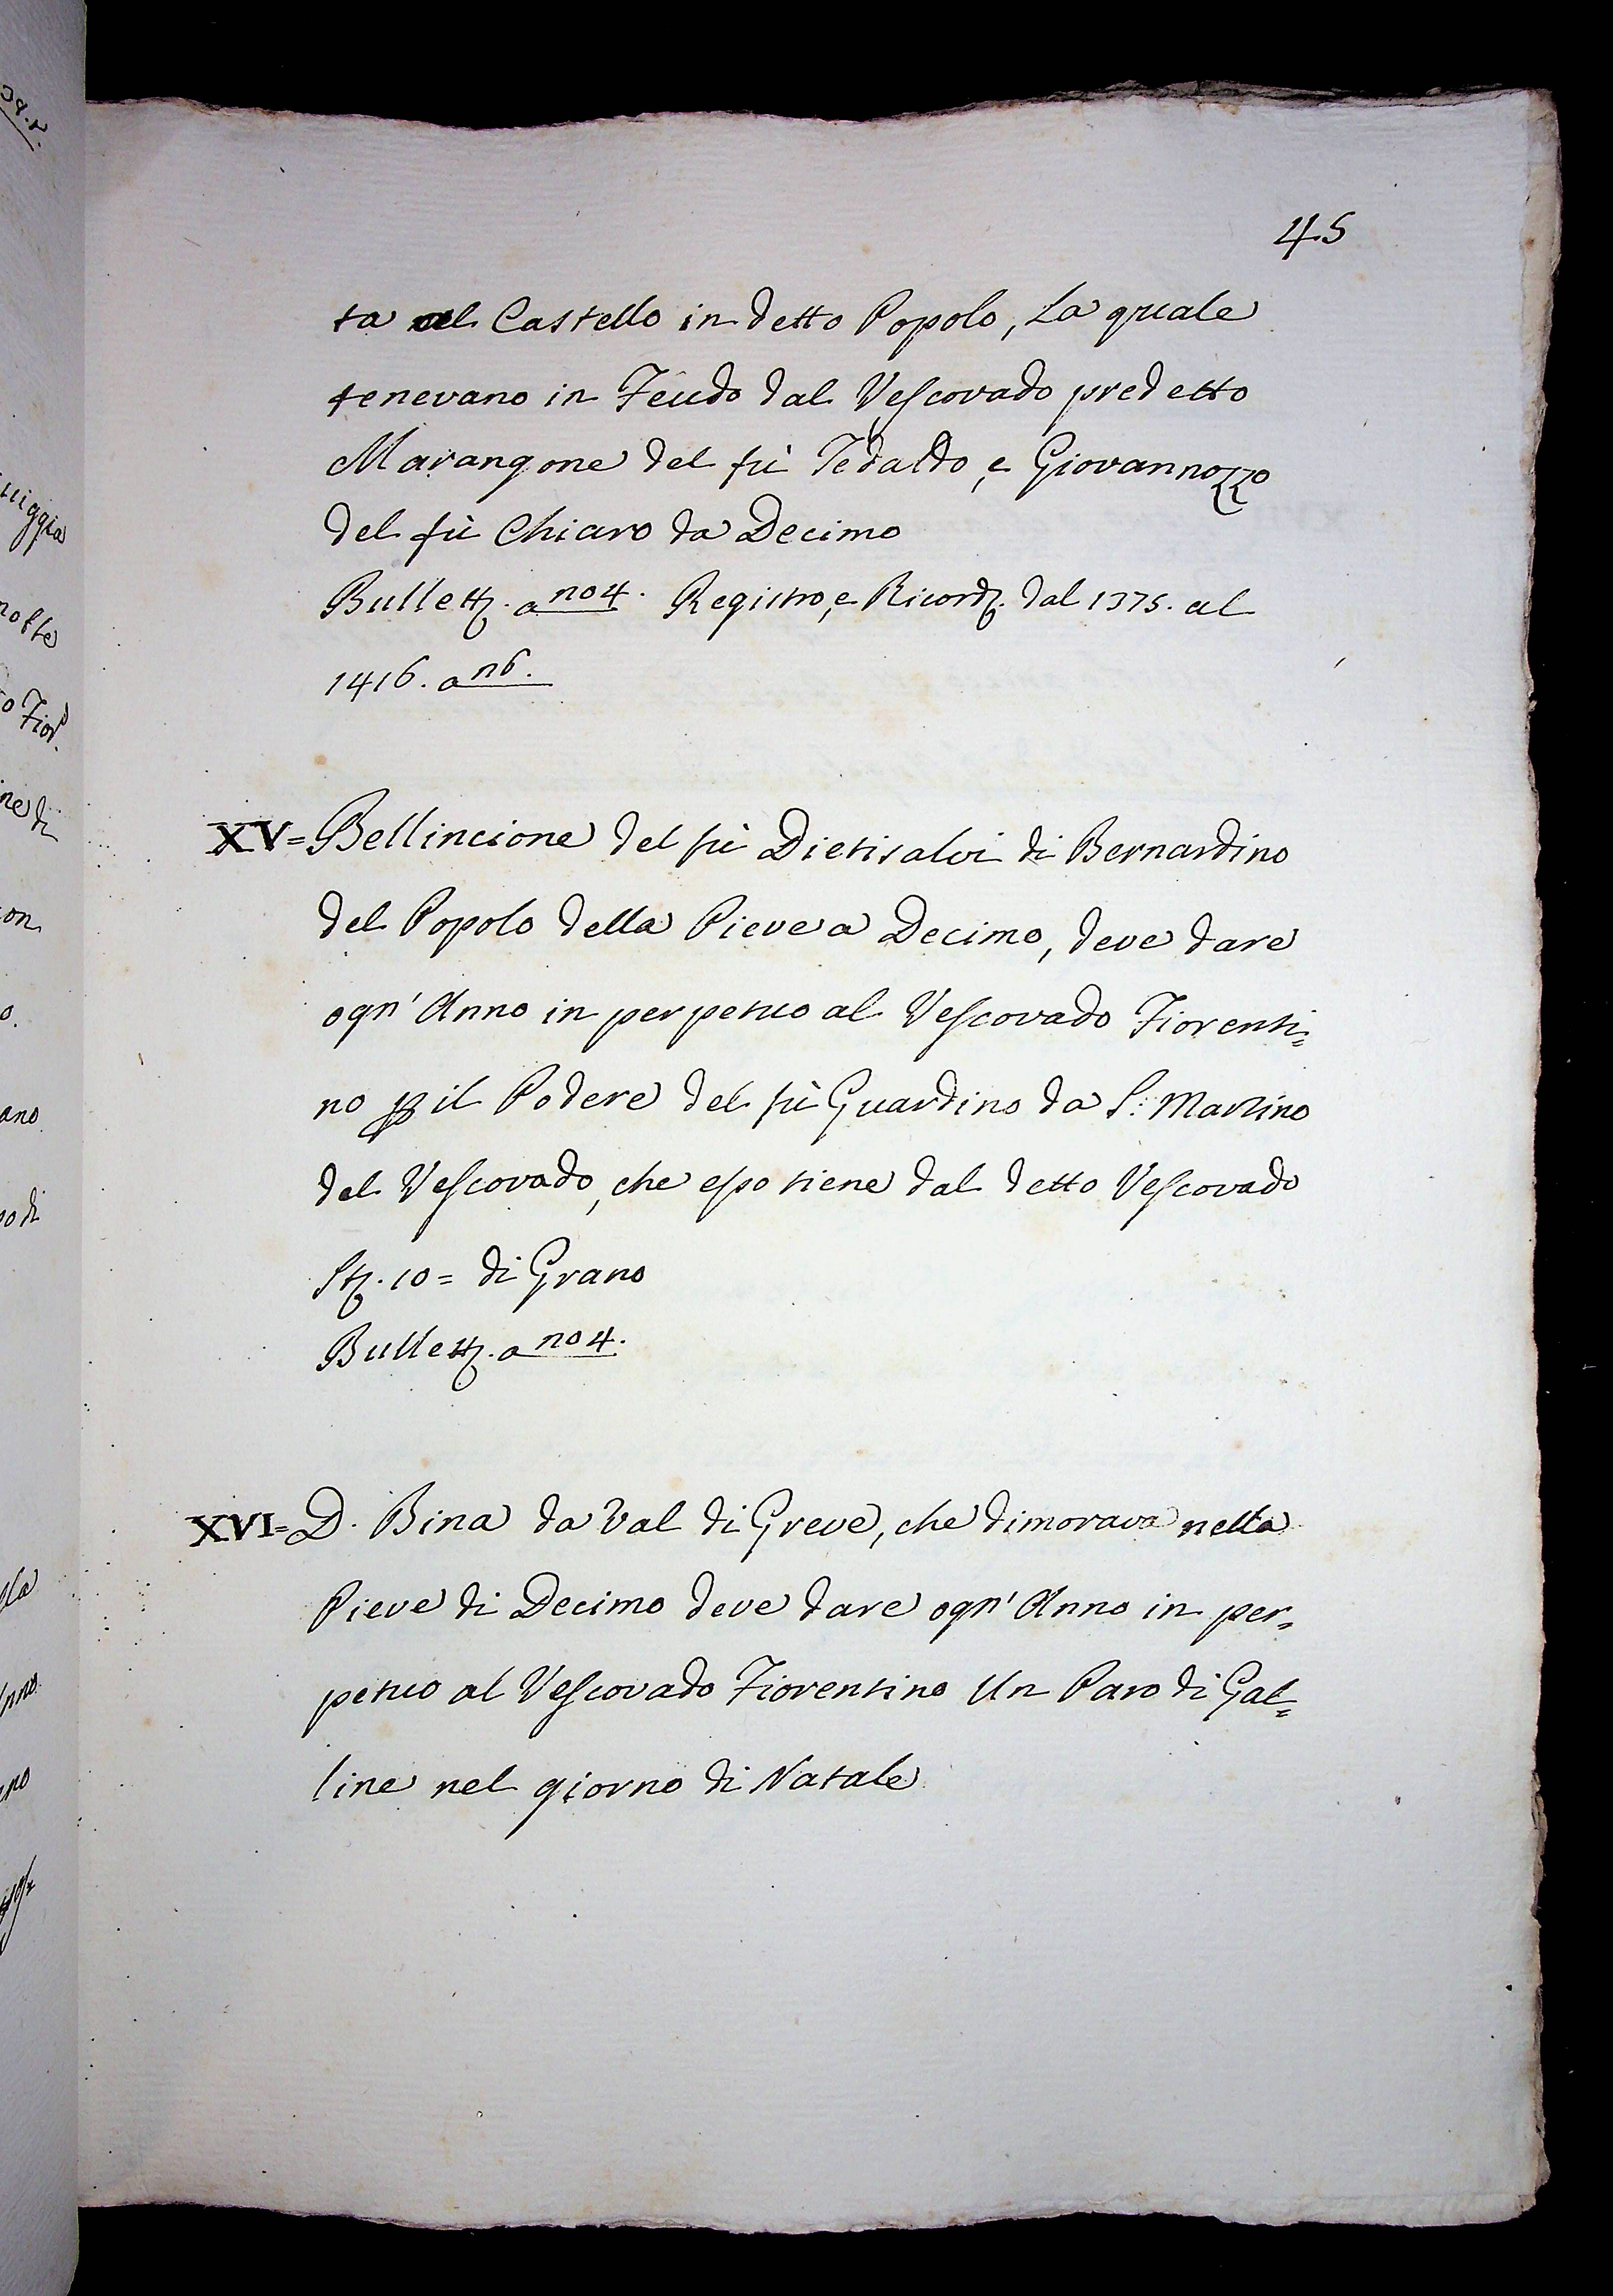 45
ta al Castello in detto Popolo, La quale
tenevano in Feudo dal Vescovado predetto
Marangone del fù Tedaldo, e Giovannozzo
del fù Chiaro da Decimo
Bullett. a no 4. Registro, e Ricord. dal 1375. al
1416. a n 6.
XV= Bellincione del fù Dietisalvi di Bernardino
del Popolo della Pieve a Decimo, deve dare
ogn' Anno in perpetuo al Vescovado Fiorenti=
no p il Podere del fù Guardino da S. Martino
del Vescovado, che esso tiene dal detto Vescovado
St. 10= di Grano
Bullett. a no 4.
XVI= D. Bina da Val di Greve, che dimorava nella
Pieve di Decimo deve dare ogn' Anno in per=
petuo al Vescovado Fiorentino Un Paro di Gal=
line nel giorno di Natale